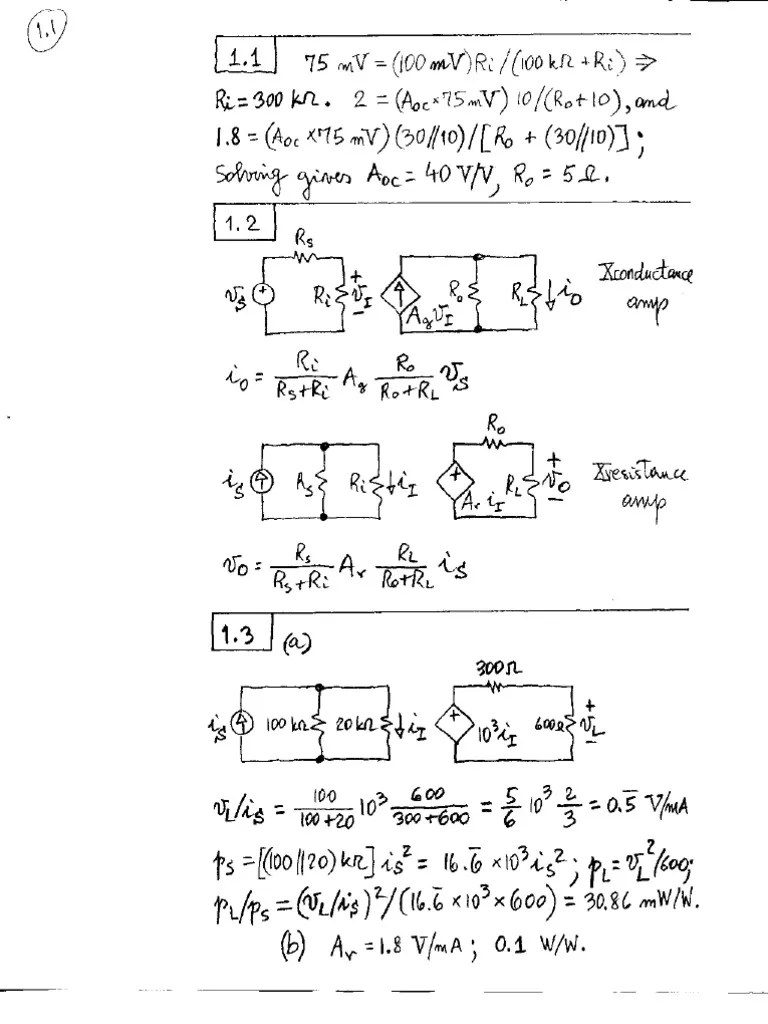 1.1
1.1 75 mV = (100 mV)Ri/(100 kΩ + Ri) ⇒
Ri = 300 kΩ. 2 = (Aoc × 75 mV) 10/(Ro + 10), and
1.8 = (Aoc × 75 mV)(30//10)/[Ro + (30//10)];
Solving gives Aoc = 40 V/V, Ro = 5 Ω.
1.2
Rs
vS + Ri + vI − AgvI Ro RL iO Xconductance
amp
iO = Ri/(Rs+Ri) Ag Ro/(Ro+RL) vS
Ro
iS Rs Ri iI + Ar iI RL + vO − Xresistance
amp
vO = Rs/(Rs+Ri) Ar RL/(Ro+RL) iS
1.3 (a)
300Ω
iS 100 kΩ 20 kΩ iI + 10³iI 600Ω + vL −
vL/iS = 100/(100+20) 10³ 600/(300+600) = 5/6 10³ 2/3 = 0.5̅ V/mA
pS = [(100||20) kΩ] iS² = 16.6̅ × 10³ iS²; pL = vL²/600;
pL/pS = (vL/iS)²/(16.6̅ × 10³ × 600) = 30.86 mW/W.
(b) Ar = 1.8 V/mA; 0.1 W/W.